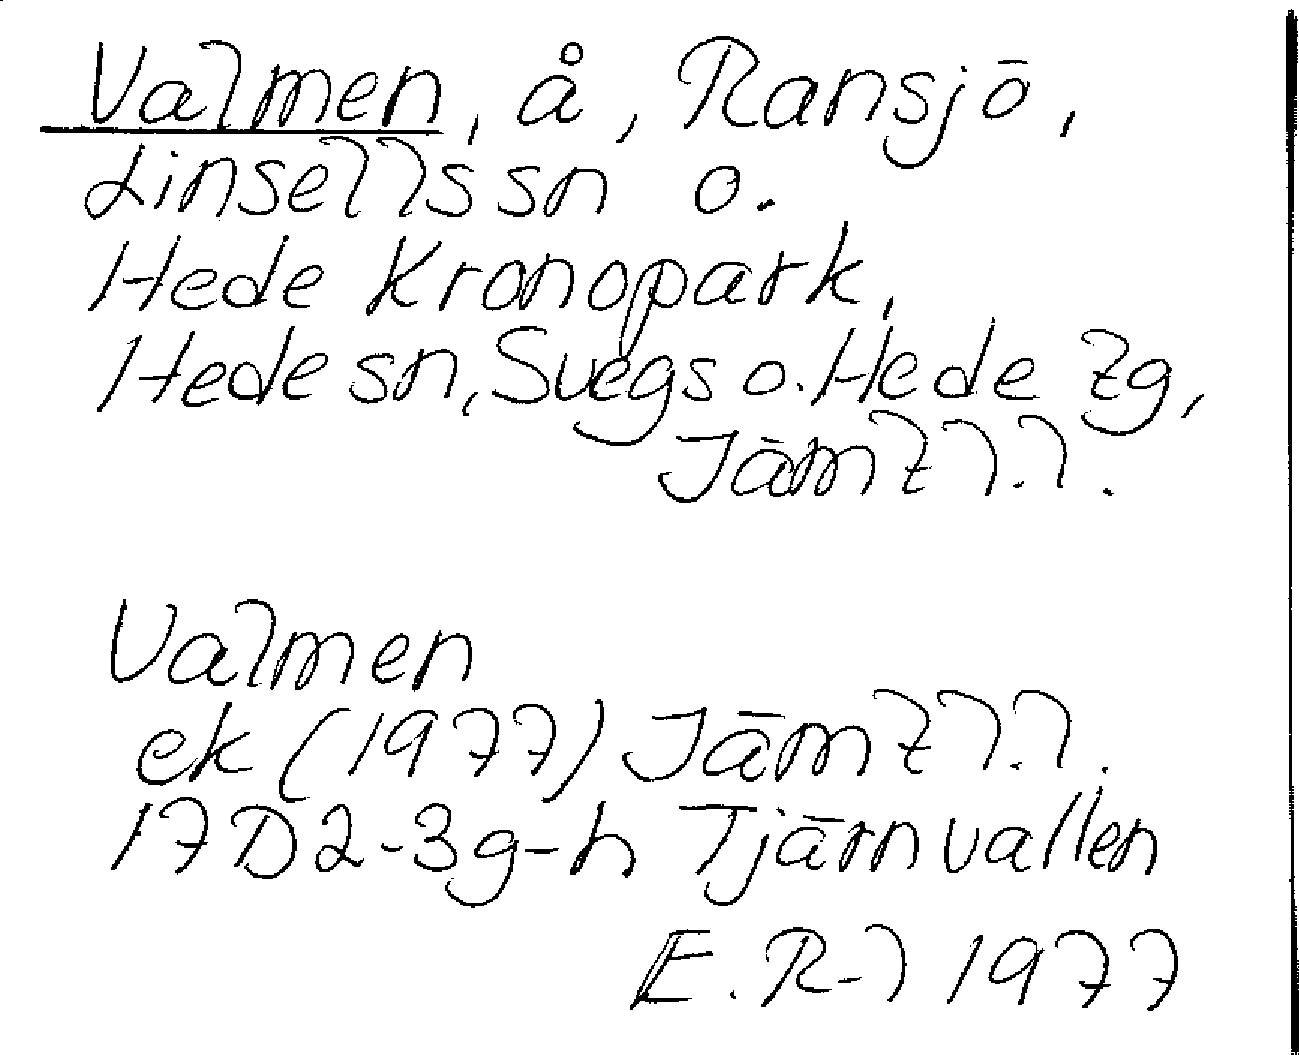 Valmen, å, Ransjö,
Linsells sn o.
Hede Kronopark,
Hede sn, Svegs o. Hede tg,
Jämtl. l.
Valmen
ek (1977) Jämtl. l.
17D2-3g-h Tjärnvallen
E. R-l 1977